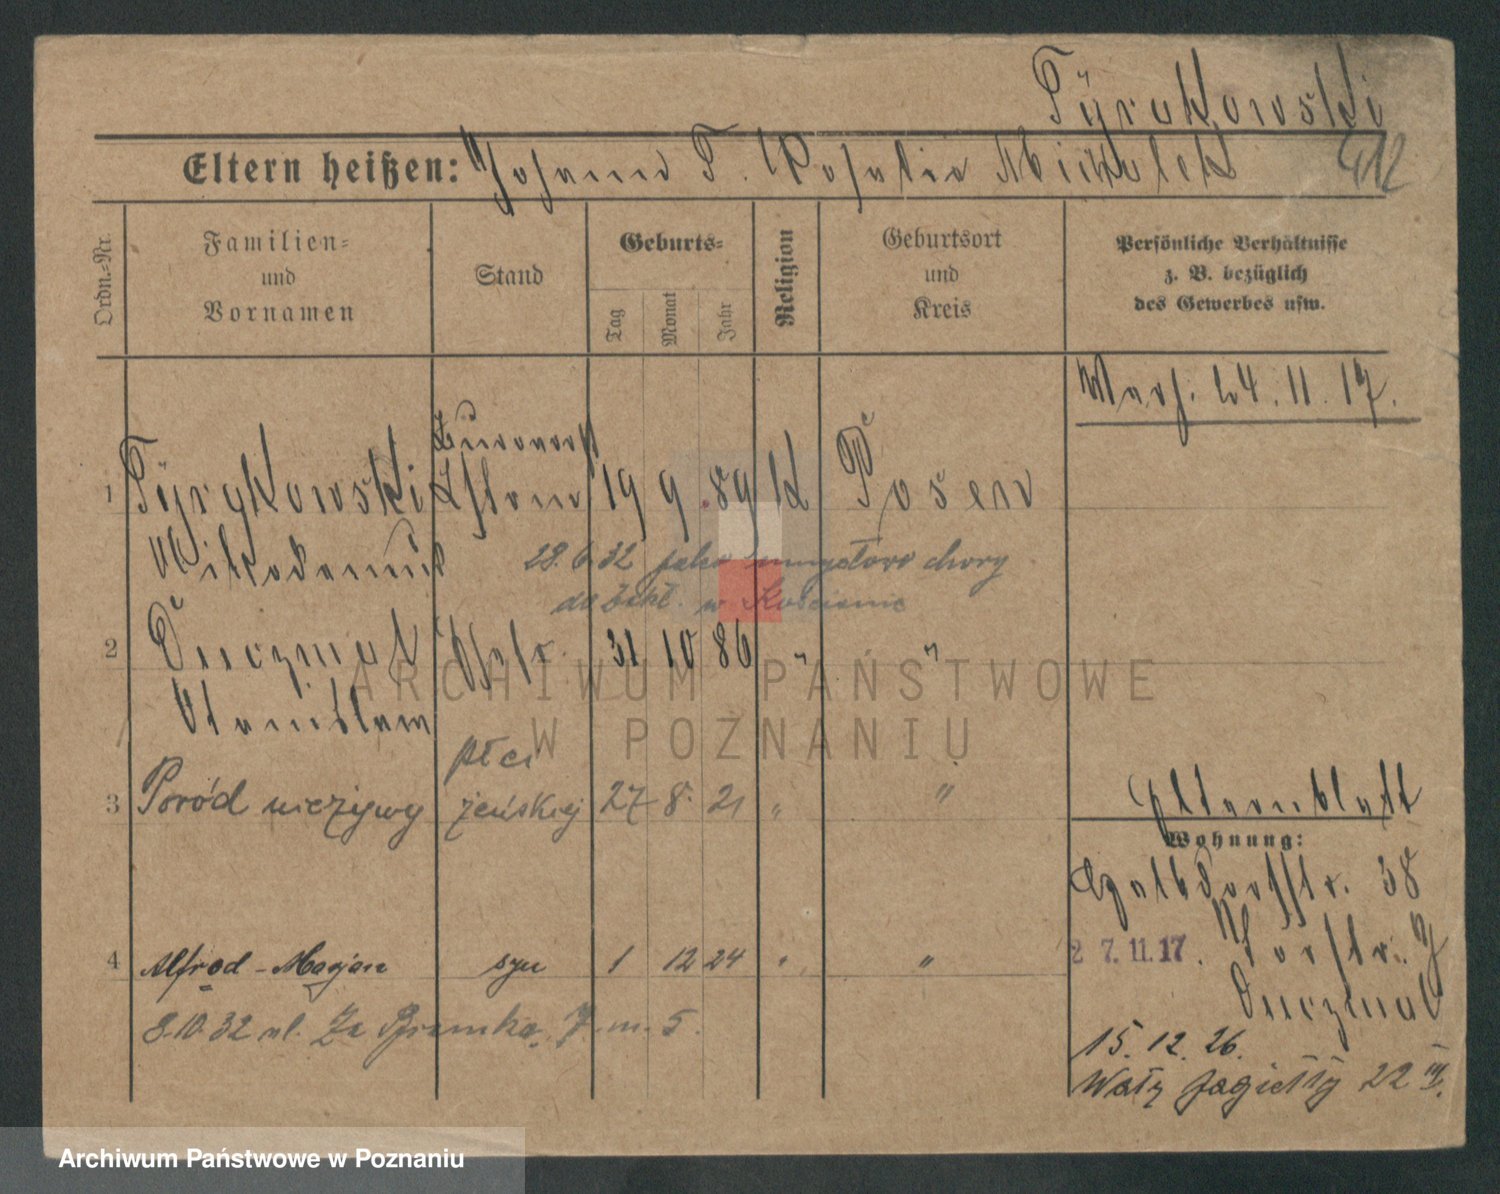 Tyrakowski
Eltern heißen: Johann T. Rosalie Michalek
412
Ordn.=Nr.
Familien=
und
Vornamen
Stand
Geburts=
Tag
Monat
Jahr
Religion
Geburtsort
und
Kreis
Persönliche Verhältnisse
z. B. bezüglich
des Gewerbes usw.
24. 11. 17.
1 Tyrakowski 19 9 89 K Posen
Nikodemus
28. 6. 32 jako umysłowo chory
do Zakł. w Kościanie
2 Duczmal 31 10 86 " "
Stanislawa
płci
3 Poród nieżywy żeńskiej 27 8. 21 " "
Elternblatt
Wohnung:
38
4 Alfred - Marjan syn 1 12 24 " "
27. 11. 17. Torstr. 7
Duczmal
8.10.32 ul. Za Bramką 7 m. 5.
15. 12. 26.
Wały Jagiełły 22 III.
ARCHIWUM PAŃSTWOWE
W POZNANIU
Archiwum Państwowe w Poznaniu